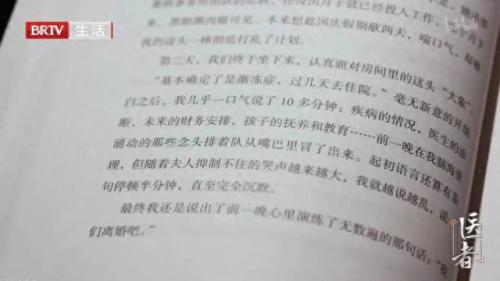 BRTV 生活
来、黑眼圈肉眼可见。本来想趁国庆假期歇两天,喘口气,
我的迎头一棒彻底打乱了计划。
第二天,我们终于坐下来,认真面对房间里的这头“大象”。
“基本确定了是渐冻症,过几天去住院。”毫无新意的开场
白之后,我几乎一口气说了10多分钟:疾病的情况,医生的论
断,未来的财务安排,孩子的抚养和教育……前一晚在我脑海里
涌动的那些念头排着队从嘴巴里冒了出来。起初语言还算有条
理,但随着夫人抑制不住的哭声越来越大,我就越说越乱,说一
句停顿半分钟,直至完全沉默。
最终我还是说出了前一晚心里演练了无数遍的那句话:“我
们离婚吧。”
医者